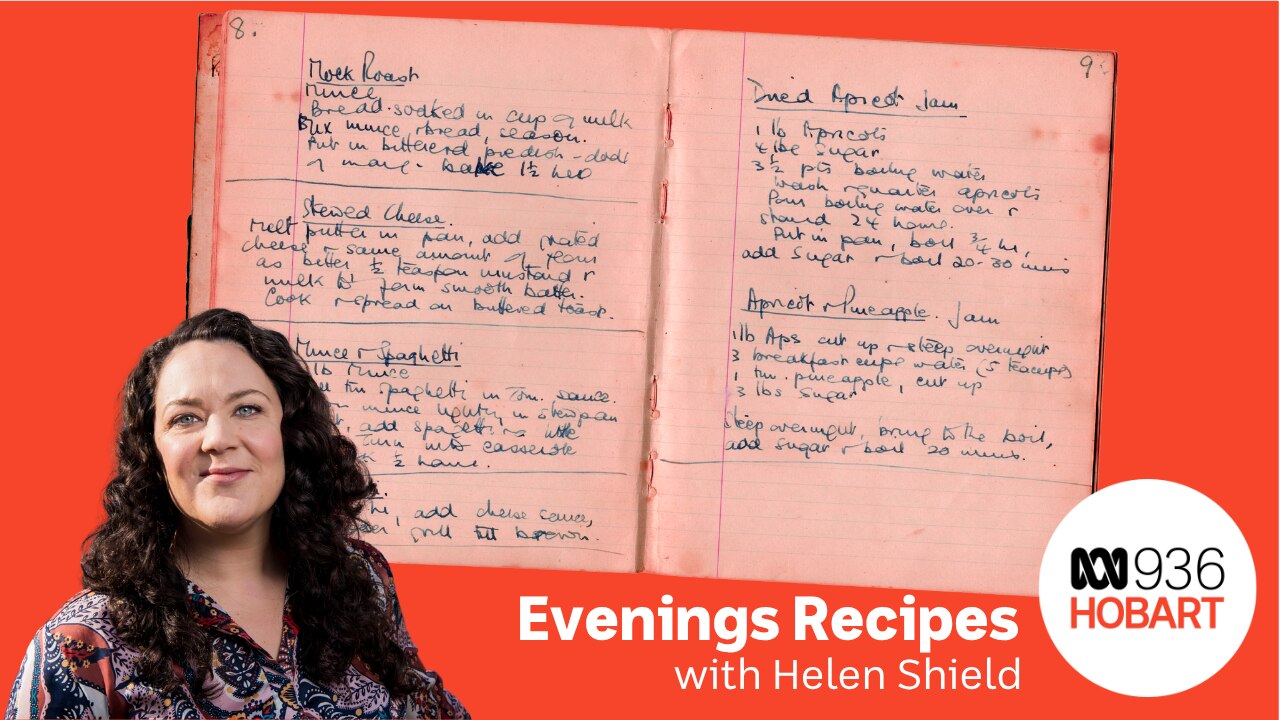 8.
Mock Roast
Mince
Bread soaked in cup of milk
Mix mince & bread, season.
Put in buttered piedish - dods
of marg - bake 1½ hrs
Stewed Cheese.
Melt butter in pan, add grated
cheese & same amount of flour
as butter ½ teaspon mustard &
milk to form smooth batter.
Cook & spread on buttered toast.
Mince & Spaghetti
lb Mince
tin Spaghetti in Tom. sauce.
mince lightly in stewpan
add spaghetti & little
Turn into casserole
½ hour.
add cheese sauce,
grill till brown.
9
Dried Apricot Jam
1 lb Apricots
4 lbs Sugar
3½ pts boiling water
Wash & quarter apricots
Pour boiling water over &
stand 24 hours.
Put in pan, boil ¾ hr,
add sugar & boil 20-30 mins
Apricot & Pineapple Jam
1 lb Aps cut up & steep overnight
3 breakfast cups water (5 teacups)
1 tin pineapple, cut up
3 lbs Sugar
Steep overnight, bring to the boil,
add sugar & boil 20 mins.
Evenings Recipes
with Helen Shield
936
HOBART